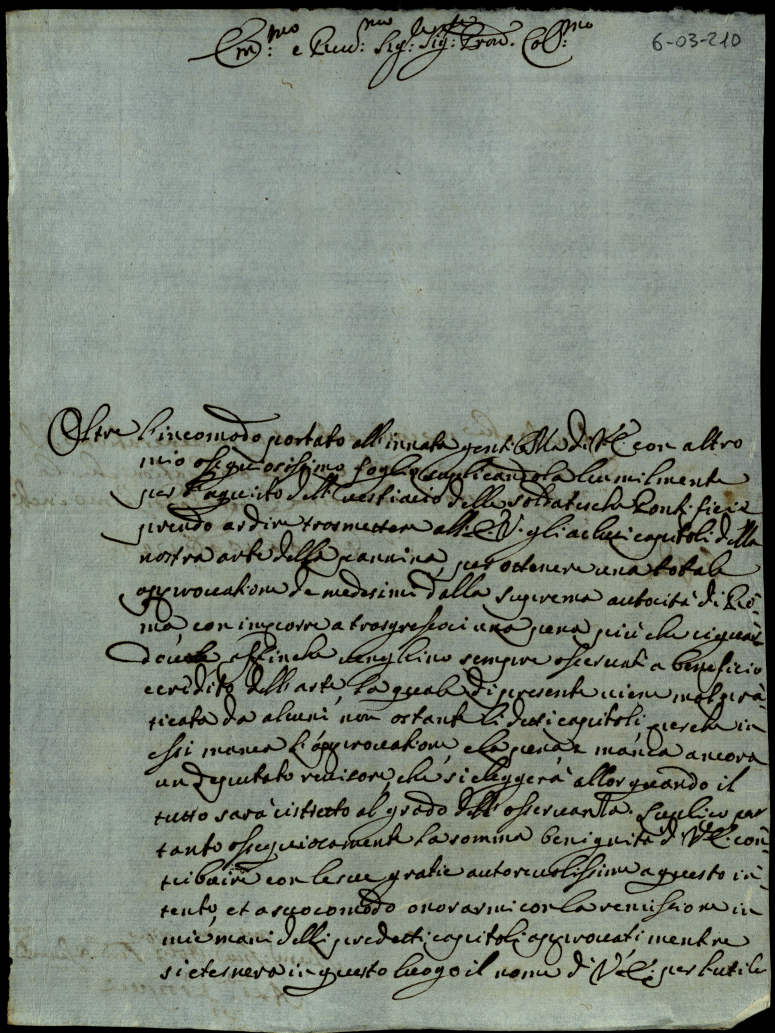 Em.mo e Reu.mo Sig.r Sig.r e Pron. Col.mo
6-03-210
Oltre l'incomodo portato all'innata gentilezza di V.E. con altro
mio ossequiosissimo foglio suplicandola humilmente
per l'aquisto dell vestiario delle soldatesche Pontificie
prendo ardire trosmettere all'E.V. gli aclusi capitoli della
nostra arte della pannina, per ottenere una totale
approuatione de medesimi dalla suprema autorità di Ro-
ma, con imporre a trasgressori una pena più che riguar-
deuole, affinche venghino sempre osseruati a beneficio
e credito dell'arte, la quale di presente uiene mal pra-
ticata da alcuni, non ostante li detti capitoli, perche in
essi manca l'approuatione, e la pena, e manca ancora
un deputato reuisore, che si eleggerà allor quando il
tutto sarà ristretto al grado dell'osseruanza. Suplico per
tanto ossequiosamente la somma benignità di V.E. con-
tribuire con le sue gratie autoreuolissime a questo in-
tento, et a suo comodo onorarmi con la remissione in
mie mani delli predetti capitoli approuati mentre
si eternerà in questo luogo il nome di V.E. per l'utile